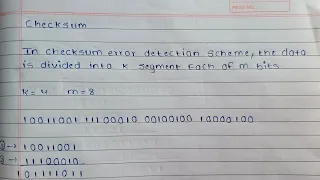 Checksum
In checksum error detection scheme, the data
is divided into k segment each of m bits
k=4 m=8
10011001 11100010 00100100 10000100
→ 10011001
→ 11100010
101111011